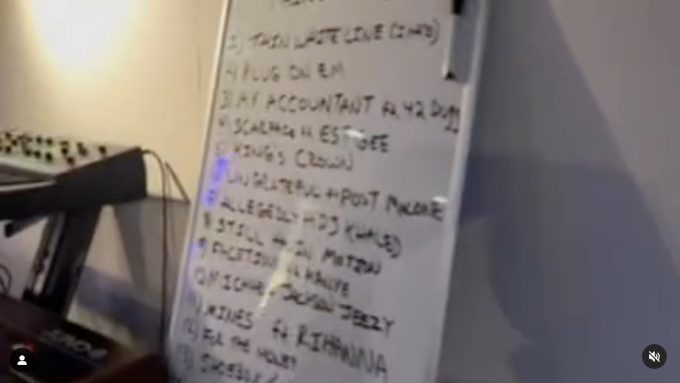 THIN WHITE LINE (INTRO)
PLUG ON EM
3) MY ACCOUNTANT ft 42 Dugg
4) SCARFACE ft EST GEE
5) KING'S CROWN
UNGRATEFUL + POST MALONE
ALLEGEDLY + DJ KHALED
8) STILL IN MOTION
9) FACETIME KANYE
10) MICHAEL JACKSON JEEZY
11) MINES ft RIHANNA
12) FOR THE MONEY
13)